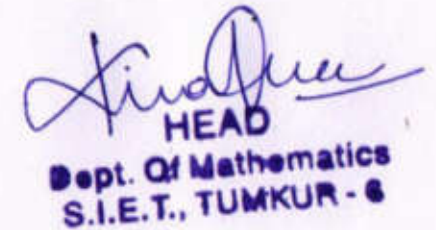 HEAD
Dept. Of Mathematics
S.I.E.T., TUMKUR - 6